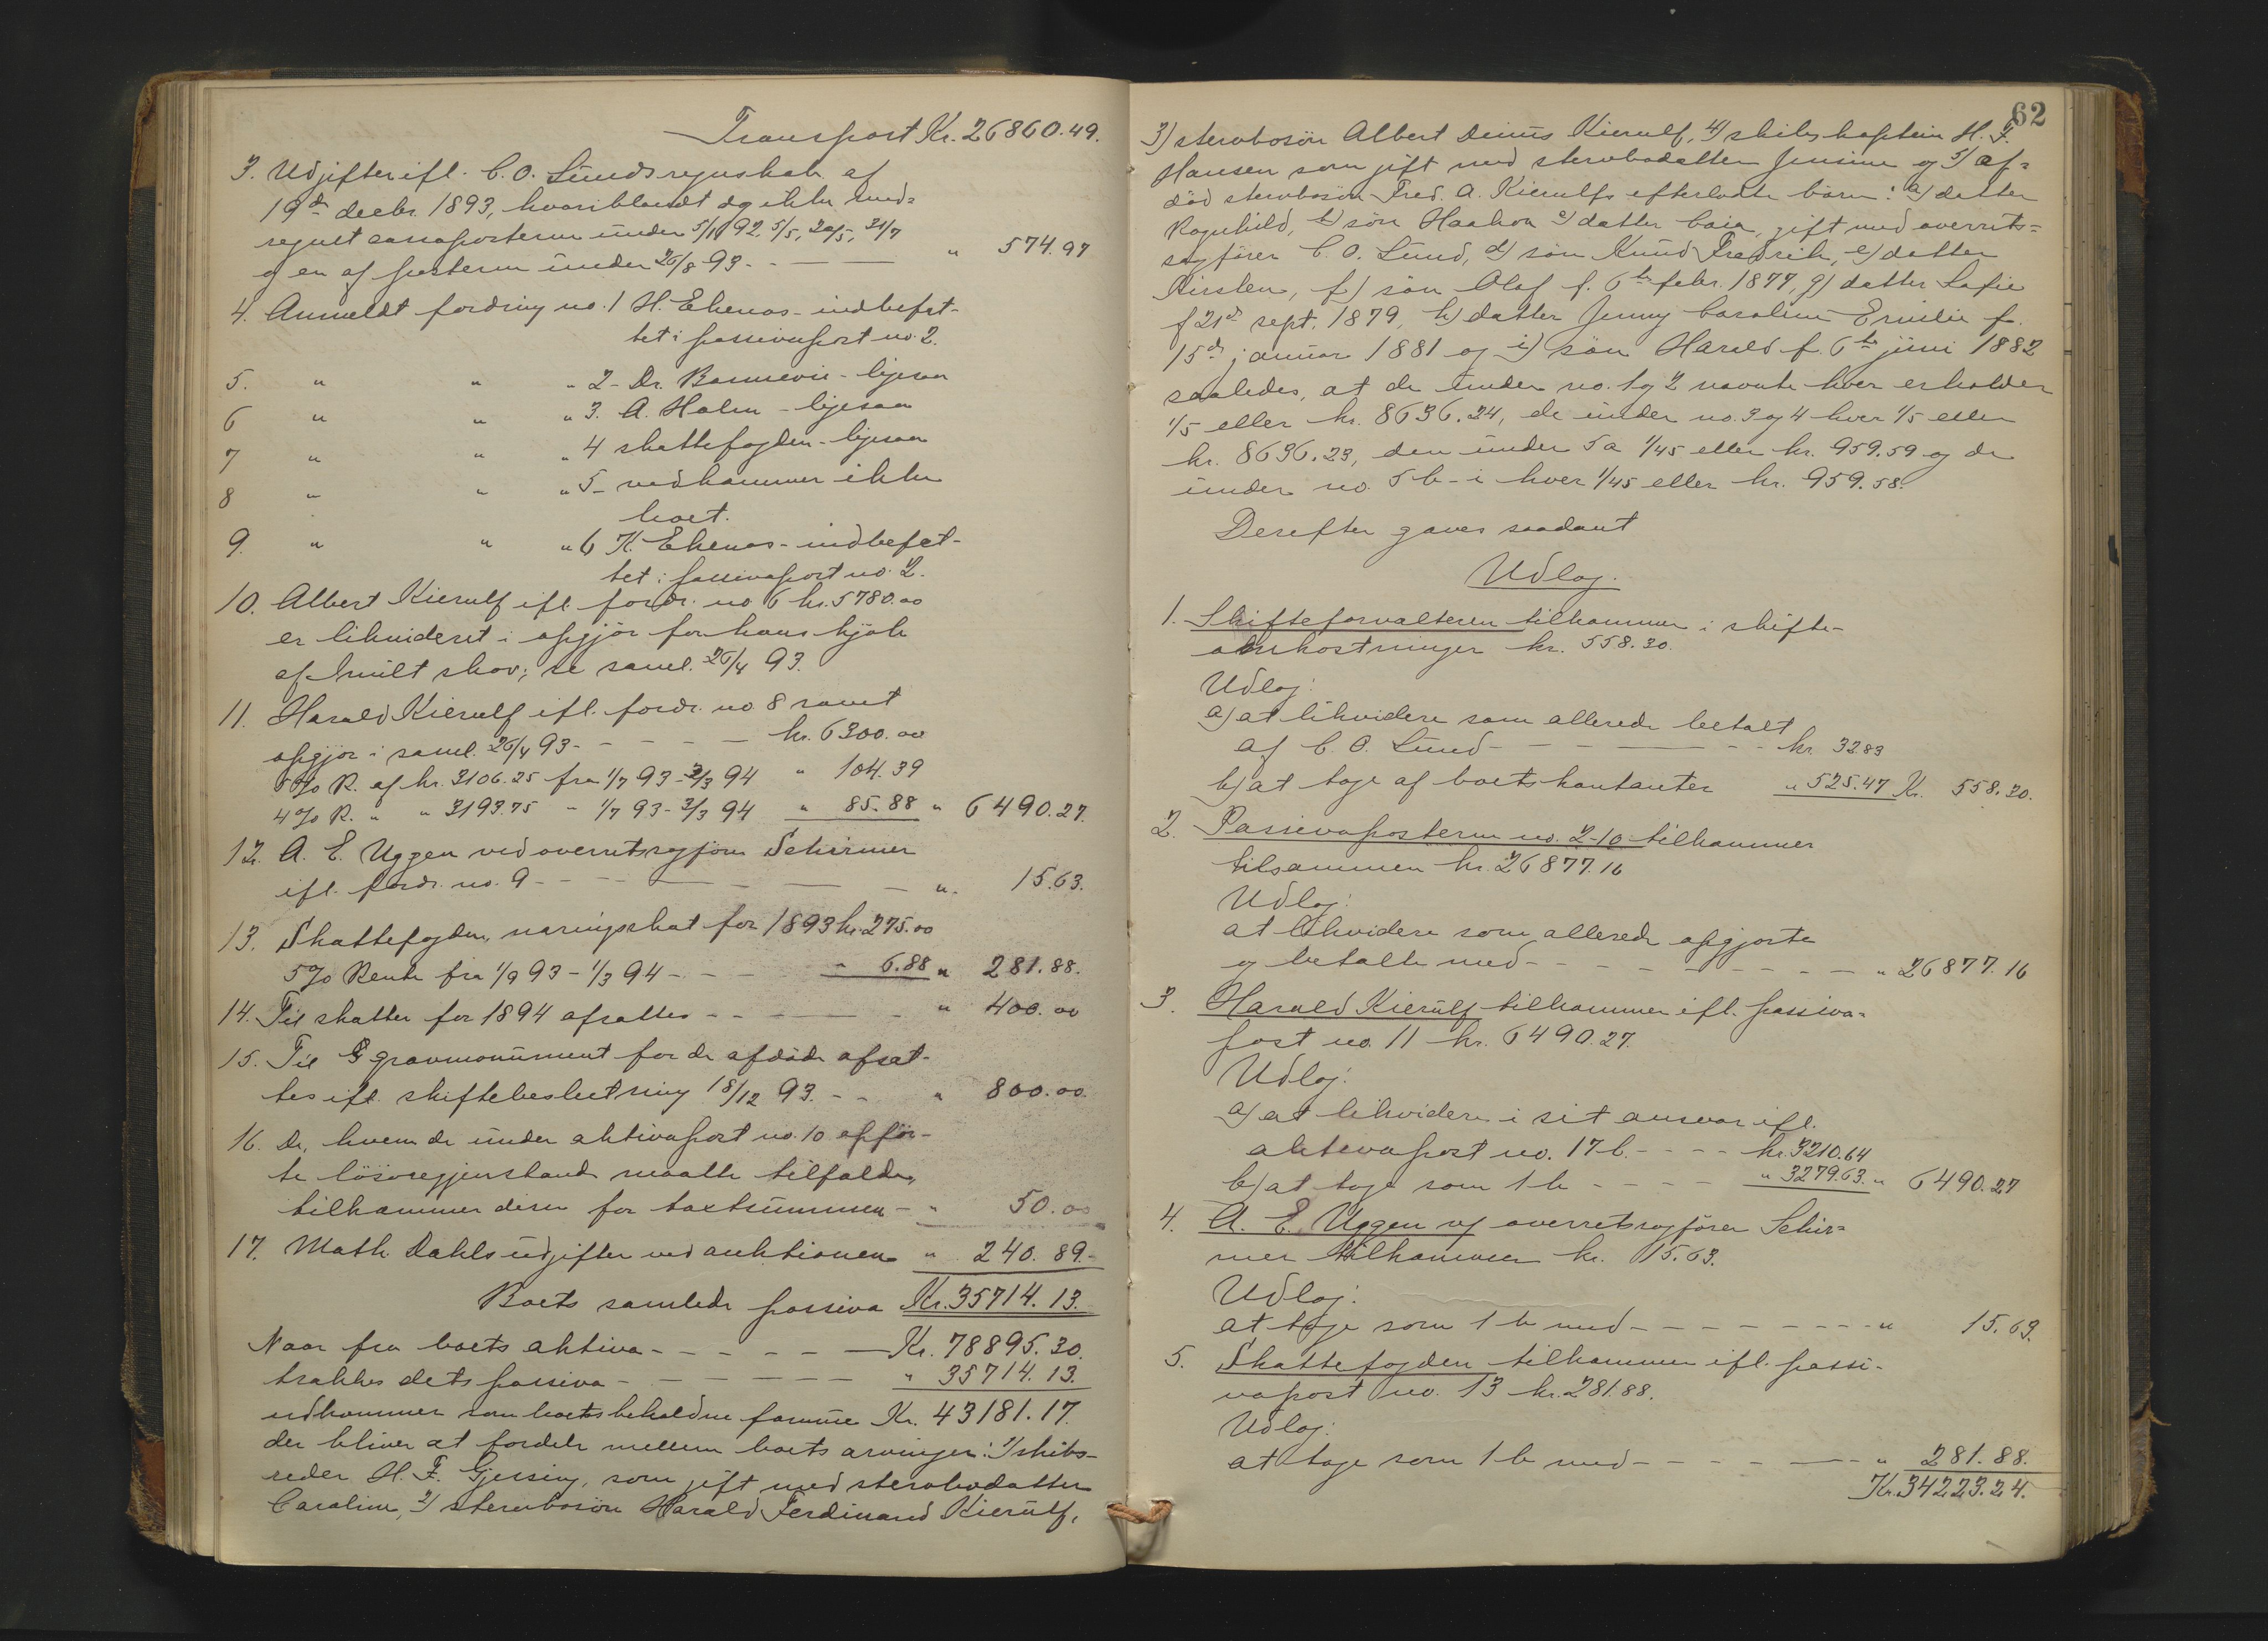 Transport Kr. 26860.49.
3. Udgifter ifl. C. O. Lunds regnskab af
19de decbr. 1893, hvoriblandt dog ikke med-
regnet cassaposterne under 5/11 92, 5/5, 20/5, 31/7
og en af posterne under 26/8 93 - - - " 574.97
4. Anmeldt fordring no. 1 H. Ekenas - indbefat-
tet i passivapost no. 2.
5. " " " 2 - Dr. - ligesaa
6 " " " 3. A. Holm - ligesaa
7 " " " 4 skattefogden - ligesaa
8 " " " 5 - vedkommer ikke
boet.
9. " " " 6 K. Ekenas - indbefat-
tet i passivapost no. 2.
10. Albert Kierulf ifl. fordr. no 6 kr. 5780.00
er likvideret i opgjör for hans kjöb
af Smilt skov; se saml. 26/4 93.
11. Harald Kierulf ifl. fordr. no 8 samt
opgjör i saml. 26/4 93 - - - - kr. 6300.00
5 % R. af kr. 3106.25 fra 1/7 93 - 3/3 94 " 104.39
4 % R. " " 3193.75 - 1/7 93 - 3/3 94 " 85.88 " 6490.27.
12. A. E. Uggen ved overretssagförer Schirmer
ifl. fordr. no. 9 - - - - - - - " 15.63.
13. Skattefogden, næringsskat for 1893 kr. 275.00
5 % Rente fra 1/9 93 - 1/3 94 - - - " 6.88 " 281.88.
14. Til skatter for 1894 afsættes - - - - " 400.00
15. Til gravmonument for de afdöde afsæt-
tes ifl. skiftebeslutning 18/12 93. - - " 800.00.
16. De, hvem de under aktivapost no. 10 opför-
te lösöregjenstande maatte tilfalde,
tilkommer disse for taxtsummen - " 50.00
17. Math. Dahls udgifter ved auktionen " 240.89.-
Boets samlede passiva Kr. 35714.13.
Naar fra boets aktiva - - - - - Kr. 78895.30.
trækkes dets passiva - - - - - " 35714.13.
udkommer som boets beholdne formue Kr. 43181.17.
der bliver at fordele mellem boets arvinger: 1) skibs-
reder H. F. Gjessing, som gift med stervbodatter
Caroline, 2) stervbosön Harald Ferdinand Kierulf,
62
3) stervbosön Albert Kierulf, 4) skibskaptein H. F.
Hansen som gift med stervbodatter Jensine og 5) af-
död stervbosön Fred. A. Kierulfs efterladte börn: a) datter
Ragnhild, b) sön Haakon c) datter Caia, gift med overrets-
sagförer C. O. Lund, d) sön Knud Fredrik, e) datter
Kirsten, f) sön Olaf f. 6te febr. 1877, g) datter Sofie
f 21de sept. 1879, h) datter Jenny Caroline Emilie f.
15de januar 1881 og i) sön Harald f. 6te juni 1882
saaledes, at de under no. 1 og 2 nævnte hver erholder
1/5 eller kr. 8636.24, de under no. 3 og 4 hver 1/5 eller
kr. 8636.23, den under 5 a 1/45 eller kr. 959.59 og de
under no. 5 b - i hver 1/45 eller kr. 959.58.
Derefter gaves saadant
Udlæg.
1. Skifteforvalteren tilkommer i skifte-
omkostninger kr. 558.30.
Udlæg:
a) at likvidere som allerede betalt
af C. O. Lund - - - - - - kr. 32.83
b) at tage af boets kontanter " 525.47 Kr. 558.30.
2. Passivaposterne no. 2-10 tilkommer
tilsammen kr. 26877.16
Udlæg:
at likvidere som allerede opgjorte
og betalte med - - - - - - - - - " 26877.16
3. Harald Kierulf tilkommer ifl. passiva-
post no. 11 kr. 6490.27.
Udlæg:
a) at likvidere i sit ansvar ifl.
aktivapost no. 17 b. - - - - kr. 3210.64
b) at tage som 1 b - - - - " 3279.63. " 6490.27
4. A. E. Uggen v/ overretssagförer Schir-
mer tilkommer kr. 15.63.
Udlæg:
at tage som 1 b med - - - - - - - - - " 15.63.
5. Skattefogden tilkommer ifl. passi-
vapost no. 13 kr. 281.88.
Udlæg:
at tage som 1 b med - - - - - - - " 281.88.
Kr. 34223.24.